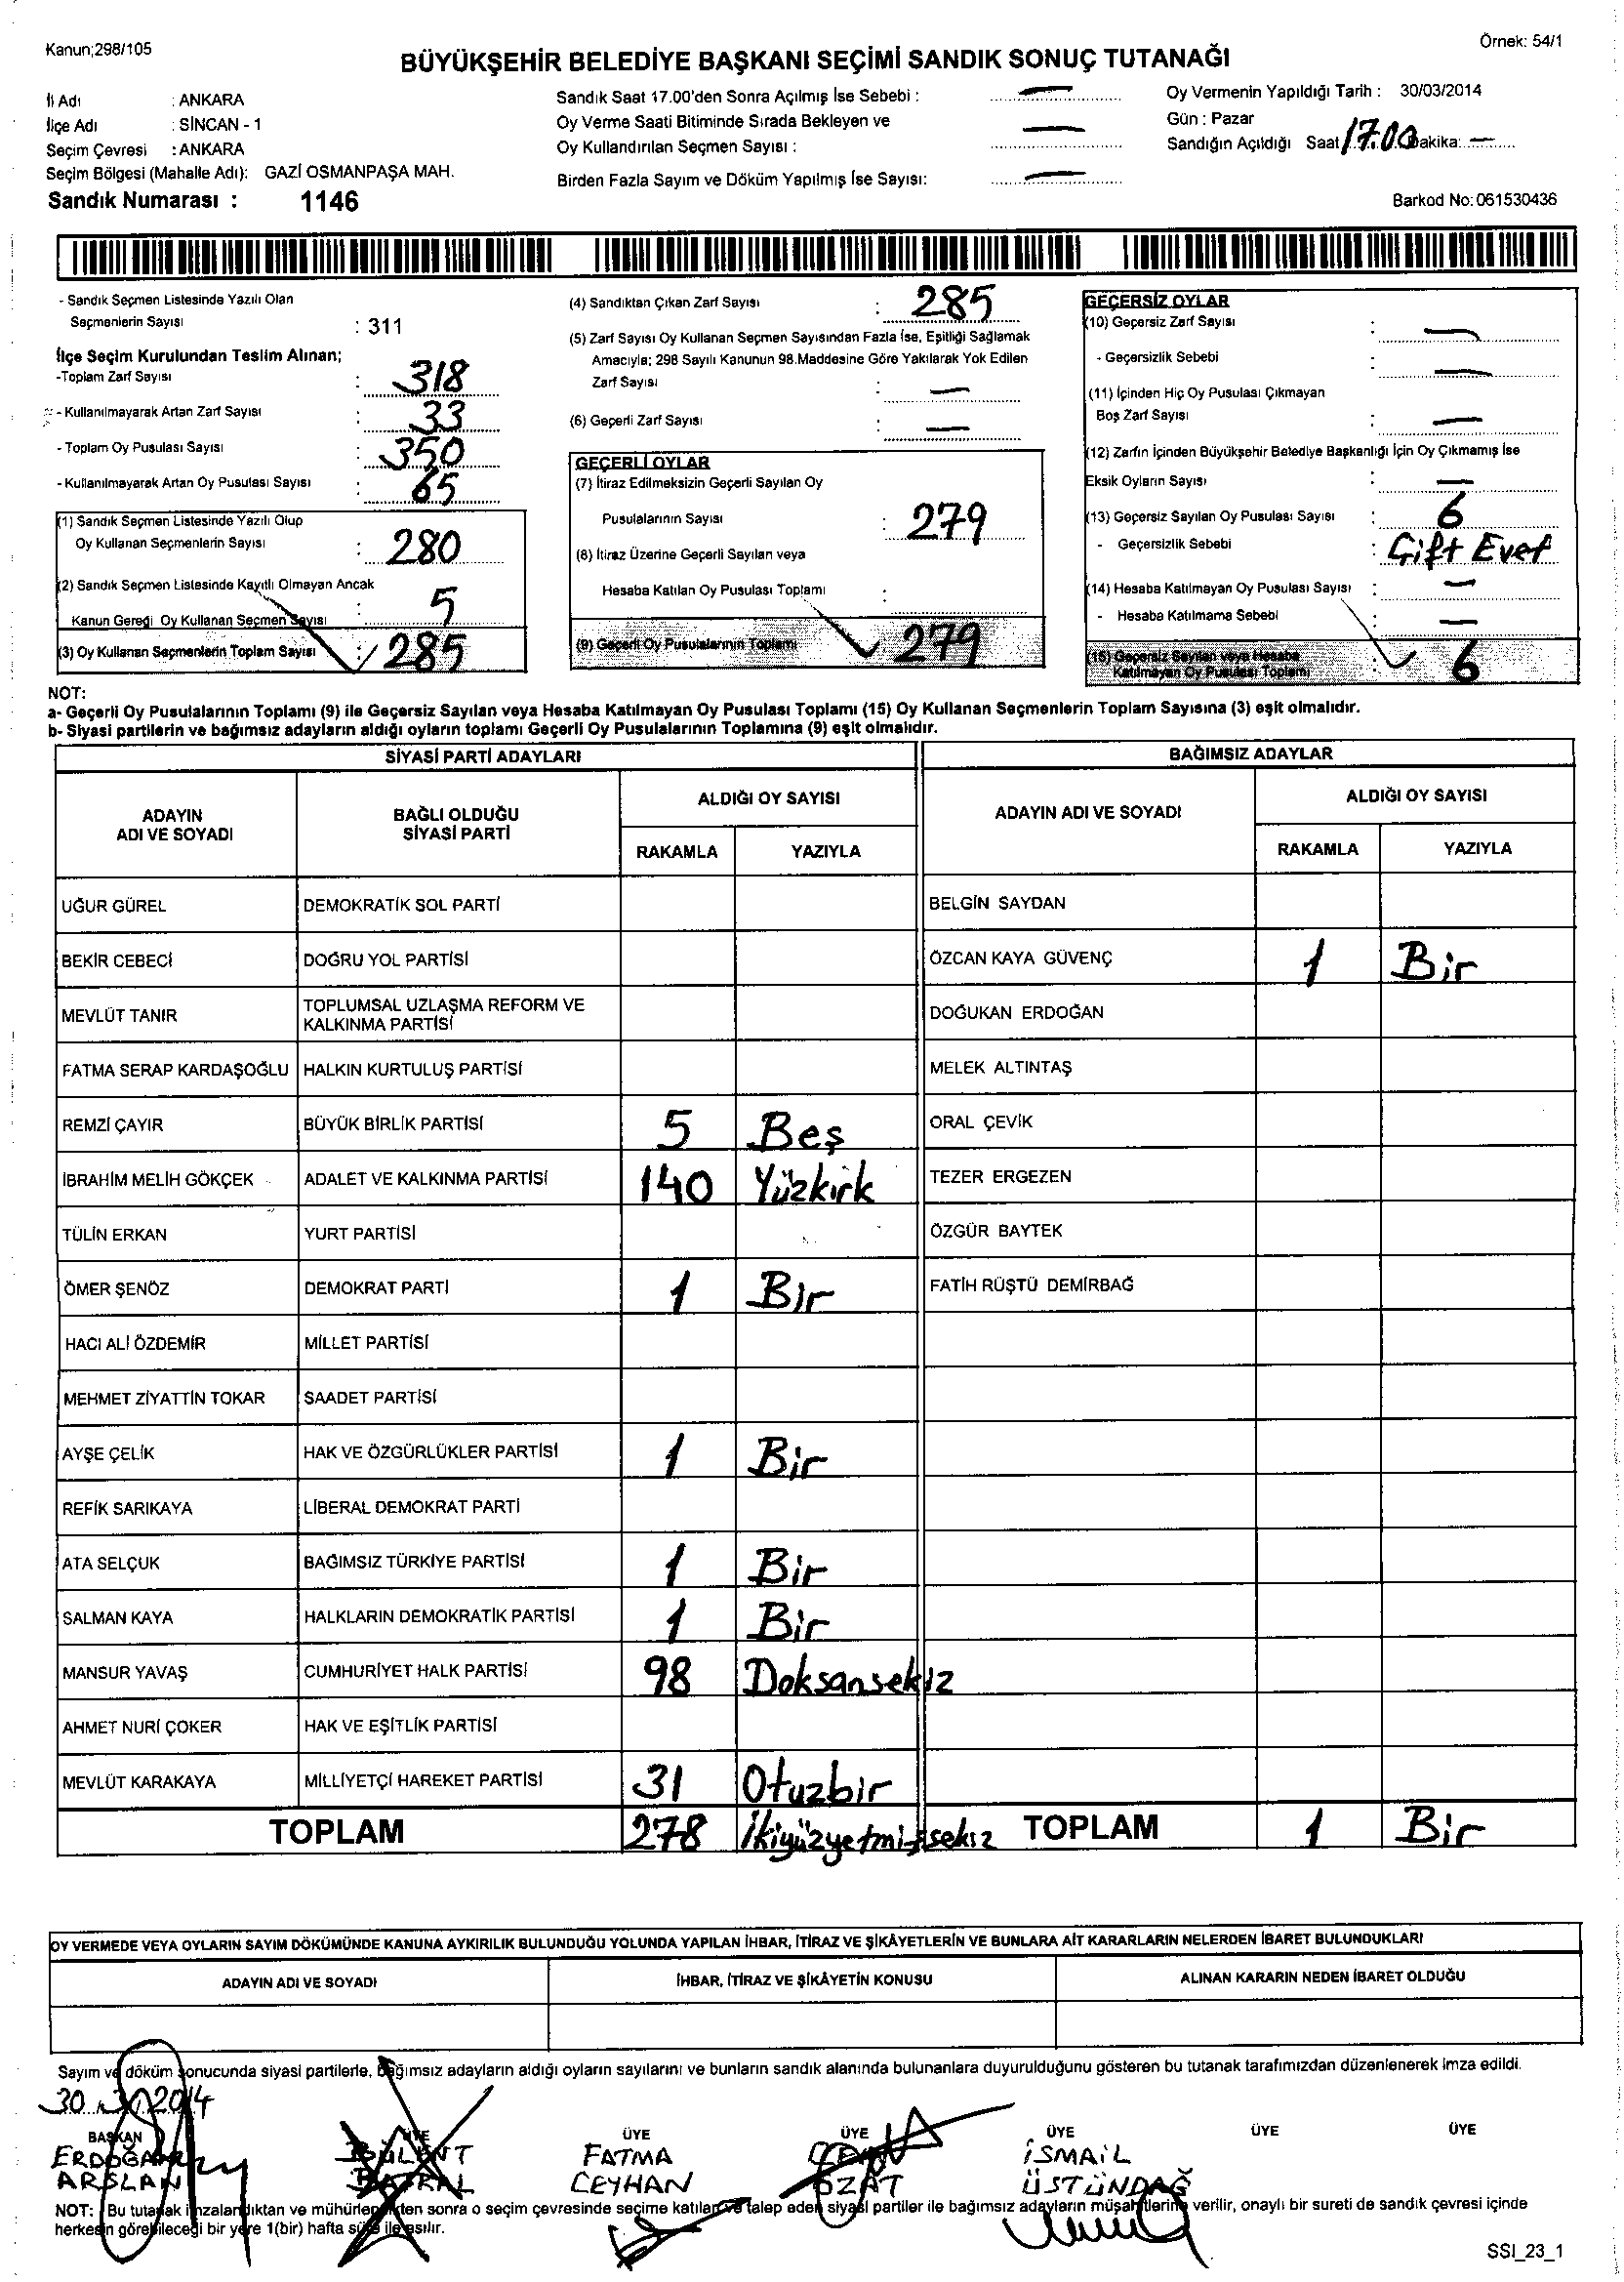 Kanun;298/105
Örnek: 54/1
BÜYÜKŞEHİR BELEDİYE BAŞKANI SEÇİMİ SANDIK SONUÇ TUTANAĞI
İl Adı : ANKARA
İlçe Adı : SİNCAN - 1
Seçim Çevresi : ANKARA
Seçim Bölgesi (Mahalle Adı): GAZİ OSMANPAŞA MAH.
Sandık Numarası : 1146
Sandık Saat 17.00'den Sonra Açılmış İse Sebebi : —
Oy Verme Saati Bitiminde Sırada Bekleyen ve
Oy Kullandırılan Seçmen Sayısı : —
Birden Fazla Sayım ve Döküm Yapılmış İse Sayısı: —
Oy Vermenin Yapıldığı Tarih : 30/03/2014
Gün : Pazar
Sandığın Açıldığı Saat 17.00 Dakika: —
Barkod No: 061530436
- Sandık Seçmen Listesinde Yazılı Olan
Seçmenlerin Sayısı : 311
İlçe Seçim Kurulundan Teslim Alınan;
-Toplam Zarf Sayısı : 318
- Kullanılmayarak Artan Zarf Sayısı : 33
- Toplam Oy Pusulası Sayısı : 350
- Kullanılmayarak Artan Oy Pusulası Sayısı : 65
(1) Sandık Seçmen Listesinde Yazılı Olup
Oy Kullanan Seçmenlerin Sayısı : 280
(2) Sandık Seçmen Listesinde Kayıtlı Olmayan Ancak
Kanun Gereği Oy Kullanan Seçmen Sayısı : 5
(3) Oy Kullanan Seçmenlerin Toplam Sayısı : 285
(4) Sandıktan Çıkan Zarf Sayısı : 285
(5) Zarf Sayısı Oy Kullanan Seçmen Sayısından Fazla İse, Eşitliği Sağlamak
Amacıyla; 298 Sayılı Kanunun 98.Maddesine Göre Yakılarak Yok Edilen
Zarf Sayısı : —
(6) Geçerli Zarf Sayısı : —
GEÇERLİ OYLAR
(7) İtiraz Edilmeksizin Geçerli Sayılan Oy
Pusulalarının Sayısı : 279
(8) İtiraz Üzerine Geçerli Sayılan veya
Hesaba Katılan Oy Pusulası Toplamı :
(9) Geçerli Oy Pusulalarının Toplamı 279
GEÇERSİZ OYLAR
(10) Geçersiz Zarf Sayısı : —
- Geçersizlik Sebebi : —
(11) İçinden Hiç Oy Pusulası Çıkmayan
Boş Zarf Sayısı : —
(12) Zarfın İçinden Büyükşehir Belediye Başkanlığı İçin Oy Çıkmamış İse
Eksik Oyların Sayısı : —
(13) Geçersiz Sayılan Oy Pusulası Sayısı : 6
- Geçersizlik Sebebi : Çift Evet
(14) Hesaba Katılmayan Oy Pusulası Sayısı : —
- Hesaba Katılmama Sebebi : —
(15) Geçersiz Sayılan veya Hesaba
Katılmayan Oy Pusulası Toplamı : 6
NOT:
a- Geçerli Oy Pusulalarının Toplamı (9) ile Geçersiz Sayılan veya Hesaba Katılmayan Oy Pusulası Toplamı (15) Oy Kullanan Seçmenlerin Toplam Sayısına (3) eşit olmalıdır.
b- Siyasi partilerin ve bağımsız adayların aldığı oyların toplamı Geçerli Oy Pusulalarının Toplamına (9) eşit olmalıdır.
SİYASİ PARTİ ADAYLARI
BAĞIMSIZ ADAYLAR
ADAYIN ADI VE SOYADI
BAĞLI OLDUĞU SİYASİ PARTİ
ALDIĞI OY SAYISI
RAKAMLA YAZIYLA
ADAYIN ADI VE SOYADI
ALDIĞI OY SAYISI
RAKAMLA YAZIYLA
UĞUR GÜREL DEMOKRATİK SOL PARTİ BELGİN SAYDAN
BEKİR CEBECİ DOĞRU YOL PARTİSİ ÖZCAN KAYA GÜVENÇ 1 Bir
MEVLÜT TANIR TOPLUMSAL UZLAŞMA REFORM VE KALKINMA PARTİSİ DOĞUKAN ERDOĞAN
FATMA SERAP KARDAŞOĞLU HALKIN KURTULUŞ PARTİSİ MELEK ALTINTAŞ
REMZİ ÇAYIR BÜYÜK BİRLİK PARTİSİ 5 Beş ORAL ÇEVİK
İBRAHİM MELİH GÖKÇEK ADALET VE KALKINMA PARTİSİ 140 Yüzkırk TEZER ERGEZEN
TÜLİN ERKAN YURT PARTİSİ ÖZGÜR BAYTEK
ÖMER ŞENÖZ DEMOKRAT PARTİ 1 Bir FATİH RÜŞTÜ DEMİRBAĞ
HACI ALİ ÖZDEMİR MİLLET PARTİSİ
MEHMET ZİYATTİN TOKAR SAADET PARTİSİ
AYŞE ÇELİK HAK VE ÖZGÜRLÜKLER PARTİSİ 1 Bir
REFİK SARIKAYA LİBERAL DEMOKRAT PARTİ
ATA SELÇUK BAĞIMSIZ TÜRKİYE PARTİSİ 1 Bir
SALMAN KAYA HALKLARIN DEMOKRATİK PARTİSİ 1 Bir
MANSUR YAVAŞ CUMHURİYET HALK PARTİSİ 98 Doksansekiz
AHMET NURİ ÇOKER HAK VE EŞİTLİK PARTİSİ
MEVLÜT KARAKAYA MİLLİYETÇİ HAREKET PARTİSİ 31 Otuzbir
TOPLAM 278 İkiyüzyetmişsekiz TOPLAM 1 Bir
OY VERMEDE VEYA OYLARIN SAYIM DÖKÜMÜNDE KANUNA AYKIRILIK BULUNDUĞU YOLUNDA YAPILAN İHBAR, İTİRAZ VE ŞİKÂYETLERİN VE BUNLARA AİT KARARLARIN NELERDEN İBARET BULUNDUKLARI
ADAYIN ADI VE SOYADI İHBAR, İTİRAZ VE ŞİKÂYETİN KONUSU ALINAN KARARIN NEDEN İBARET OLDUĞU
Sayım ve döküm sonucunda siyasi partilerle, bağımsız adayların aldığı oyların sayılarını ve bunların sandık alanında bulunanlara duyurulduğunu gösteren bu tutanak tarafımızdan düzenlenerek imza edildi.
30.3.2014
BAŞKAN ÜYE ÜYE ÜYE ÜYE ÜYE ÜYE
ERDOĞAN BÜLENT FATMA İSMAİL
ARSLAN CEYHAN OZAT ÜSTÜNDAĞ
NOT: Bu tutanak imzalandıktan ve mühürlendikten sonra o seçim çevresinde seçime katılan ve talep eden siyasi partiler ile bağımsız adayların müşahitlerine verilir, onaylı bir sureti de sandık çevresi içinde
herkesin görebileceği bir yere 1(bir) hafta süre ile asılır.
SSI_23_1